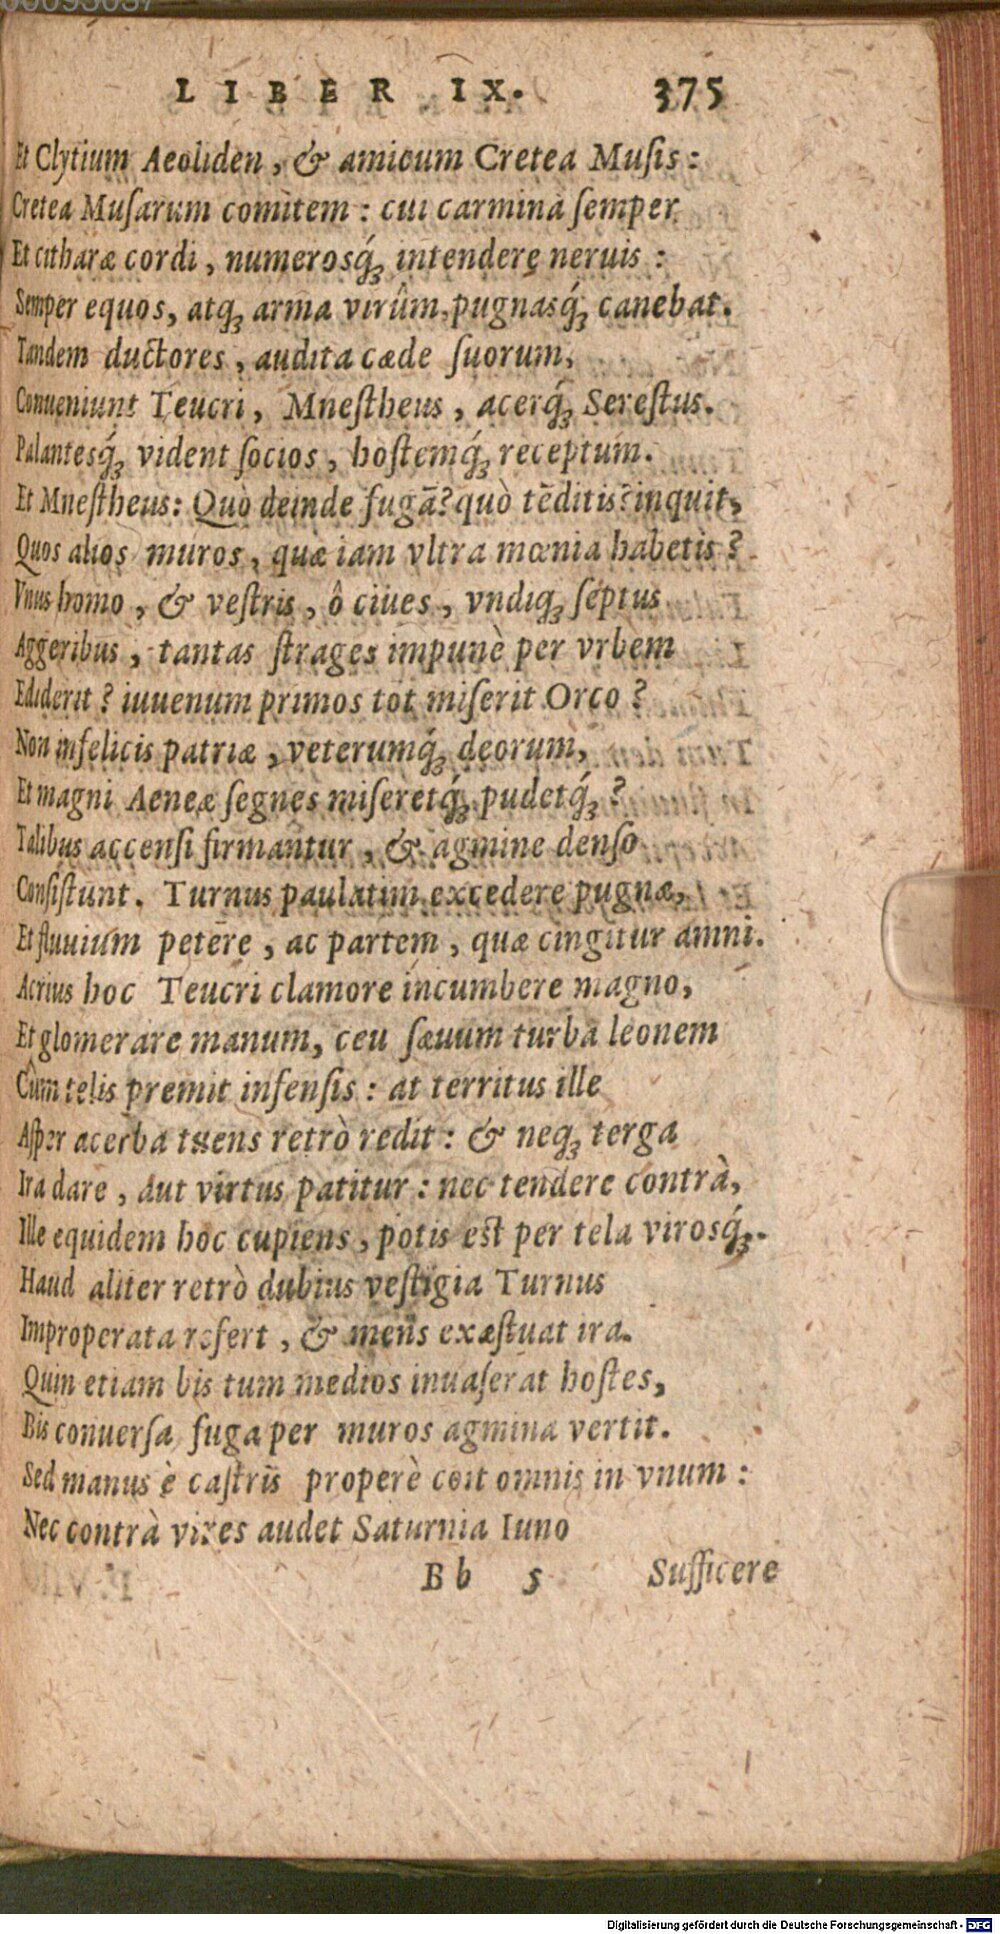 LIBER IX. 375
Et Clytium Aeoliden, & amicum Cretea Musis:
Cretea Musarum comitem: cui carmina semper
Et citharæ cordi, numerosq́; intendere neruis:
Semper equos, atq; arma virûm, pugnasq́; canebat.
Tandem ductores, audita cæde suorum,
Conueniunt Teucri, Mnestheus, acerq́; Serestus.
Palantesq́; vident socios, hostemq́; receptum.
Et Mnestheus: Quò deinde fugā? quò tēditis? inquit,
Quos alios muros, quæ iam vltra mœnia habetis?
Vnus homo, & vestris, ô ciues, vndiq; septus
Aggeribus, tantas strages impunè per vrbem
Ediderit? iuuenum primos tot miserit Orco?
Non infelicis patriæ, veterumq́; deorum,
Et magni Aeneæ segnes miseretq́; pudetq́;?
Talibus accensi firmantur, & agmine denso
Consistunt. Turnus paulatim excedere pugnæ,
Et fluuium petere, ac partem, quæ cingitur amni.
Acrius hoc Teucri clamore incumbere magno,
Et glomerare manum, ceu sæuum turba leonem
Cûm telis premit infensis: at territus ille
Asper acerba tuens retrò redit: & neq; terga
Ira dare, aut virtus patitur: nec tendere contrà,
Ille equidem hoc cupiens, potis est per tela virosq́;.
Haud aliter retrò dubius vestigia Turnus
Improperata refert, & mens exæstuat ira.
Quin etiam bis tum medios inuaserat hostes,
Bis conuersa fuga per muros agmina vertit.
Sed manus è castris properè coit omnis in vnum:
Nec contrà vires audet Saturnia Iuno
Bb 5 Sufficere
Digitalisierung gefördert durch die Deutsche Forschungsgemeinschaft - DFG